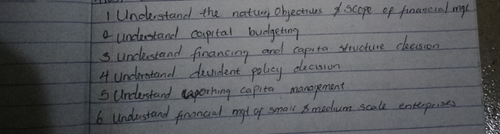 1 Understand the nature, Objectives & scope of financial mgt
2 understand capital budgeting
3 Understand financing and capita structure decision
4 Understand devident policy decision
5 Understand capita management
6 Understand financial mgt of small & medium scale enterprises